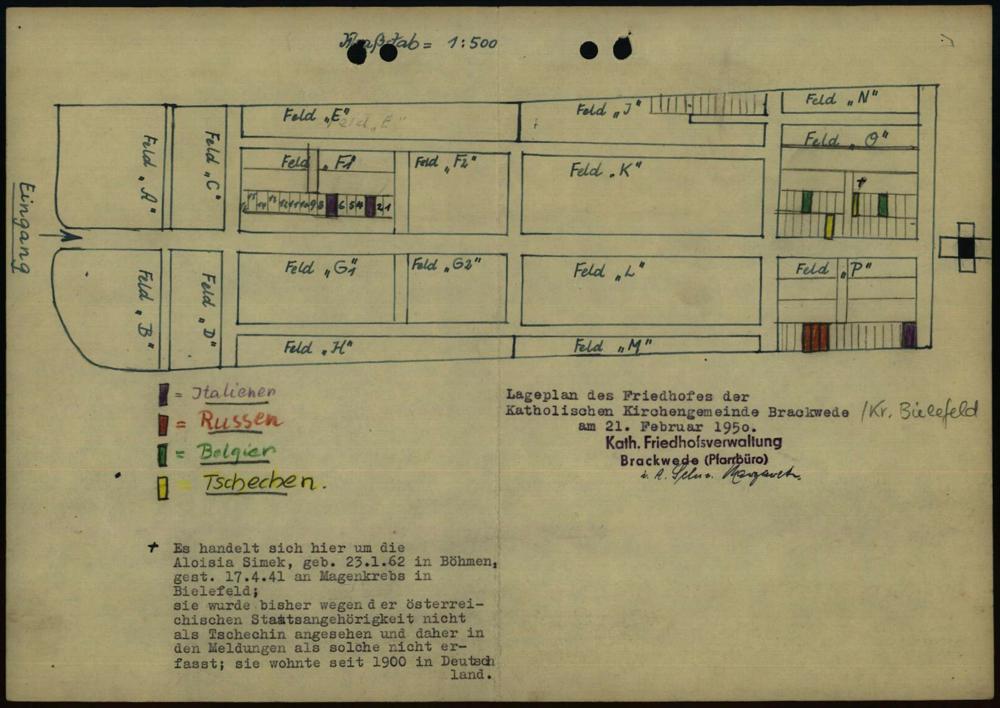 Maßstab = 1:500
Feld „E"
Feld „E"
Feld „J"
Feld „N"
Feld „A"
Feld „C"
Feld „F1
Feld „F2"
Feld „K"
Feld „O"
+
Eingang
Feld „B"
Feld „D"
Feld „G1"
Feld „G2"
Feld „L"
Feld „P"
Feld „H"
Feld „M"
= Italiener
= Russen
= Belgier
= Tschechen.
Lageplan des Friedhofes der
Katholischen Kirchengemeinde Brackwede /Kr. Bielefeld
am 21. Februar 1950.
Kath. Friedhofsverwaltung
Brackwede (Pfarrbüro)
+ Es handelt sich hier um die
Aloisia Simek, geb. 23.1.62 in Böhmen,
gest. 17.4.41 an Magenkrebs in
Bielefeld;
sie wurde bisher wegen der österrei-
chischen Staatsangehörigkeit nicht
als Tschechin angesehen und daher in
den Meldungen als solche nicht er-
fasst; sie wohnte seit 1900 in Deutsch
land.